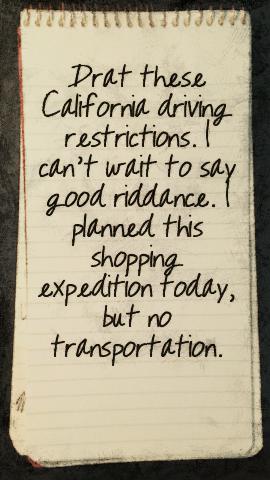 Drat these
California driving
restrictions. I
can't wait to say
good riddance. I
planned this
shopping
expedition today,
but no
transportation.